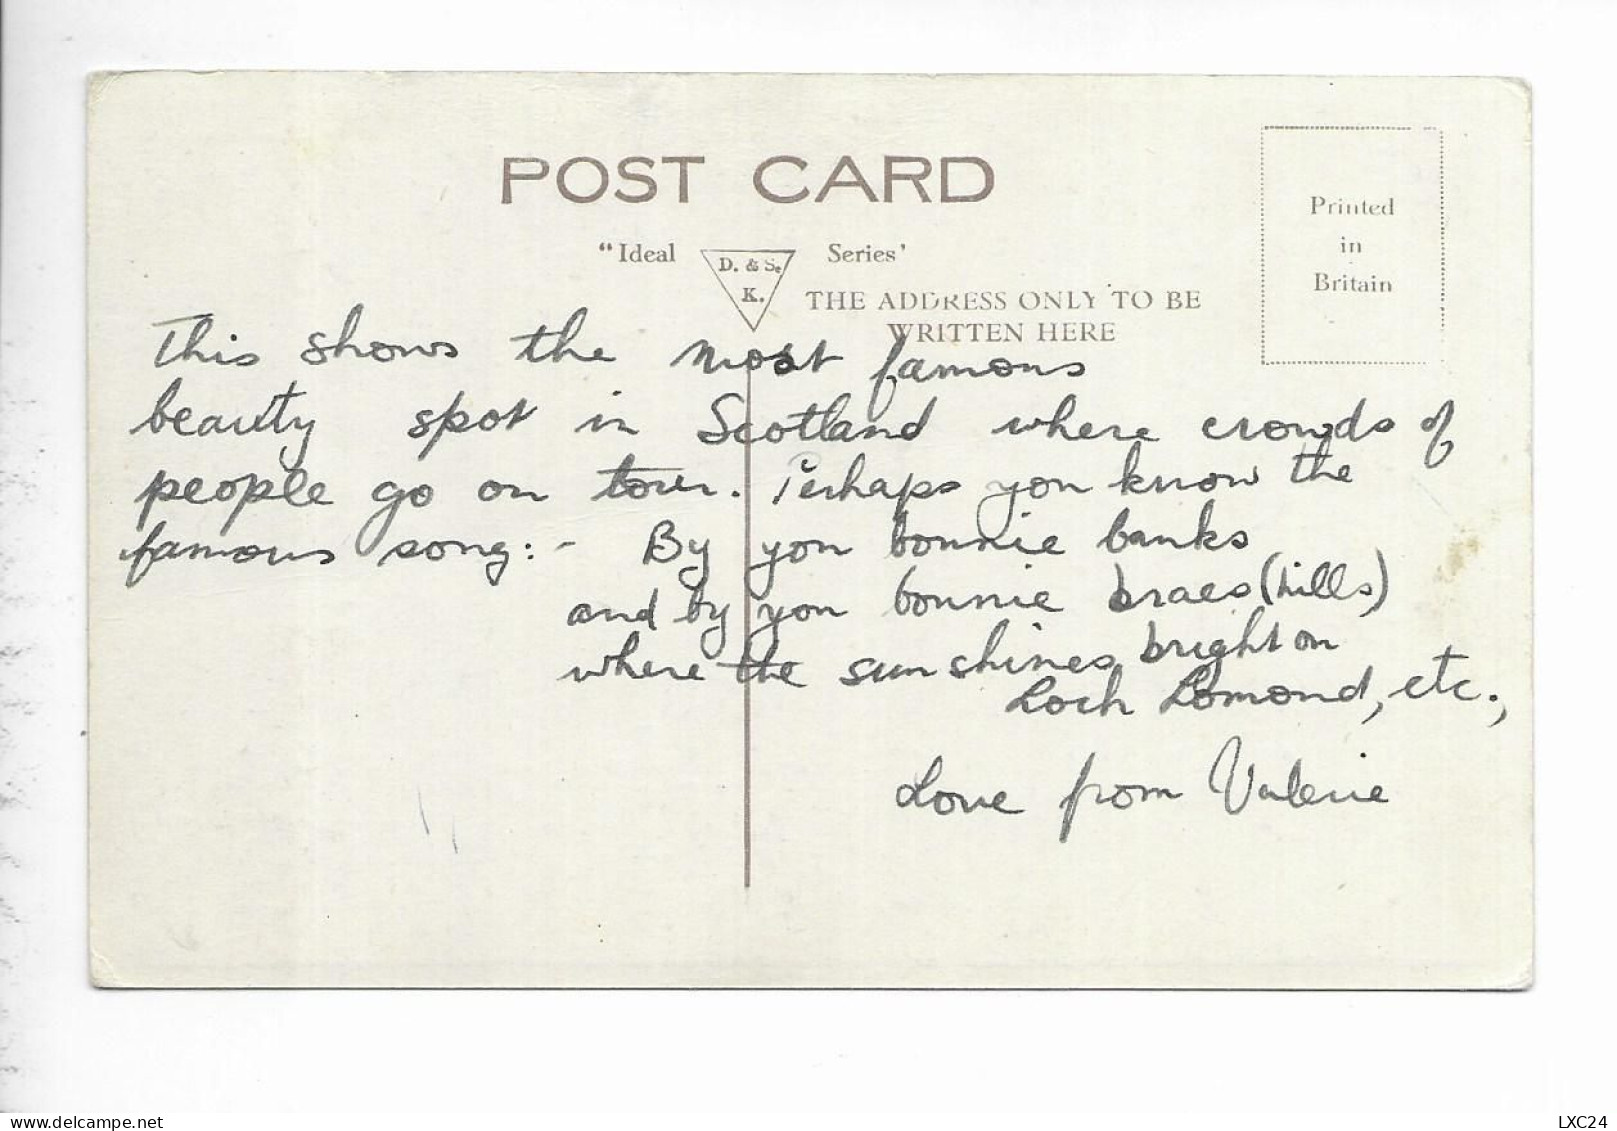 POST CARD
"Ideal D. & S. K. Series'
Printed
in
Britain
THE ADDRESS ONLY TO BE
WRITTEN HERE
This shows the most famous
beauty spot in Scotland where crowds of
people go on tour. Perhaps you know the
famous song:- By yon bonnie banks
and by yon bonnie braes (hills)
where the sun shines bright on
Loch Lomond, etc.,
Love from Valerie
www.delcampe.net
LXC24